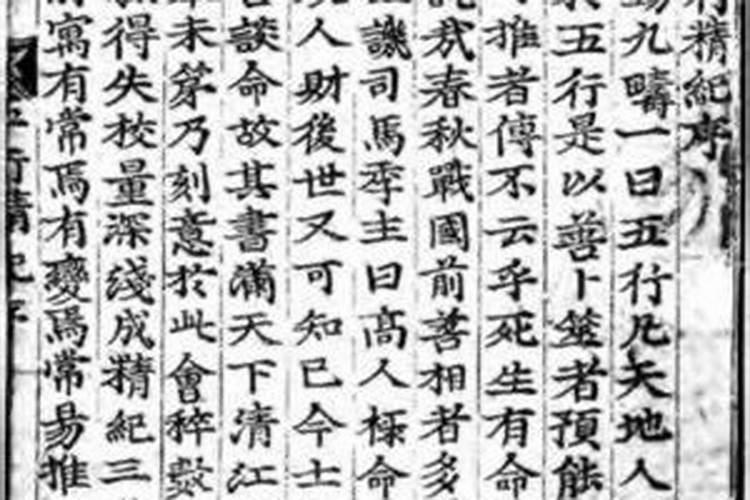 行精紀序
疇九疇一曰五行凡天地人
五行是以善卜筮者預能
推者傳不云乎死生有命
我春秋戰國前善相者多
譏司馬季主曰高人極命
人財後世又可知已今士
談命故其書滿天下清江
未第乃刻意於此會稡數
得失校量深淺成精紀三
寓有常焉有變焉常易推
五行精紀序